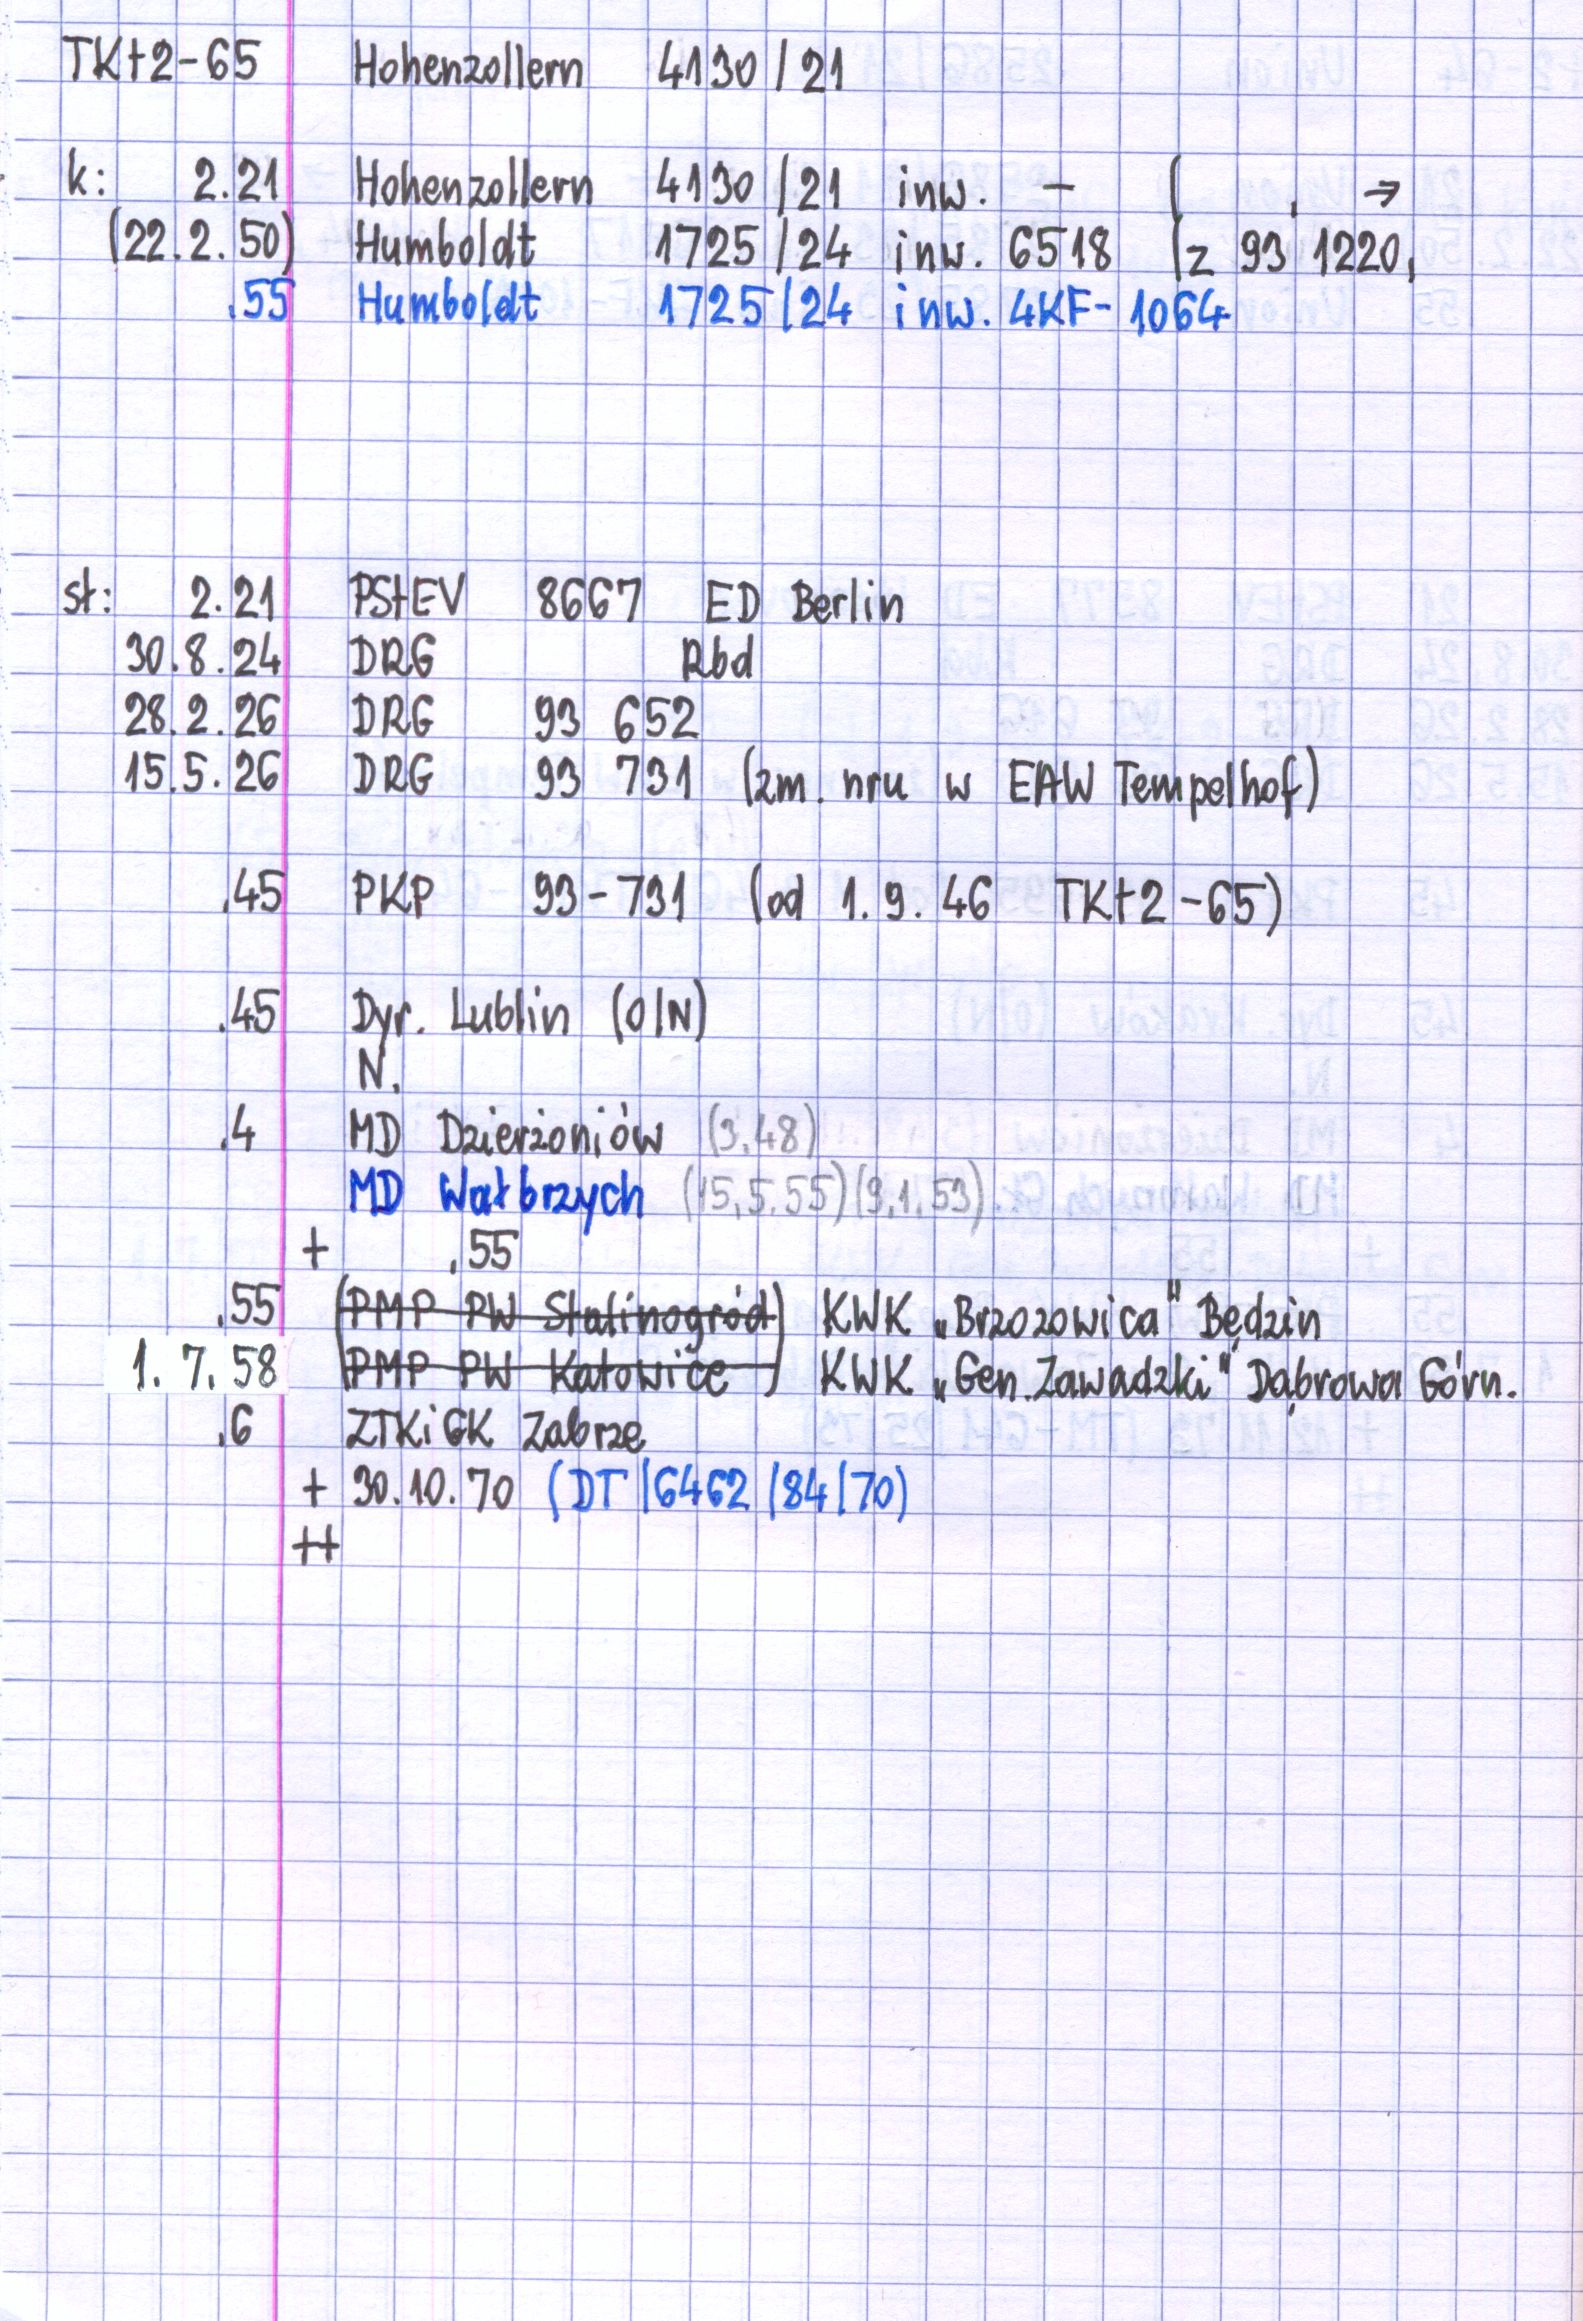 TKt2-65 Hohenzollern 4130/21
k: 2.21 Hohenzollern 4130/21 inw. – ( , →
(22.2.50) Humboldt 1725/24 inw. 6518 (z 93 1220,
.55 Humboldt 1725/24 inw. 4KF-1064
st: 2.21 PStEV 8667 ED Berlin
30.8.24 DRG Rbd
28.2.26 DRG 93 652
15.5.26 DRG 93 731 (zm. nru w EAW Tempelhof)
.45 PKP 93-731 (od 1.9.46 TKt2-65)
.45 Dyr. Lublin (O/N)
N.
.4 MD Dzierżoniów (3.48)
MD Wałbrzych (15.5.55)(9.1.53)
+ .55
.55 (PMP PW Stalinogród) KWK „Brzozowica" Będzin
1.7.58 (PMP PW Katowice) KWK „Gen. Zawadzki" Dąbrowa Górn.
.6 ZTKiGK Zabrze
+ 30.10.70 (DT/6462/84/70)
++